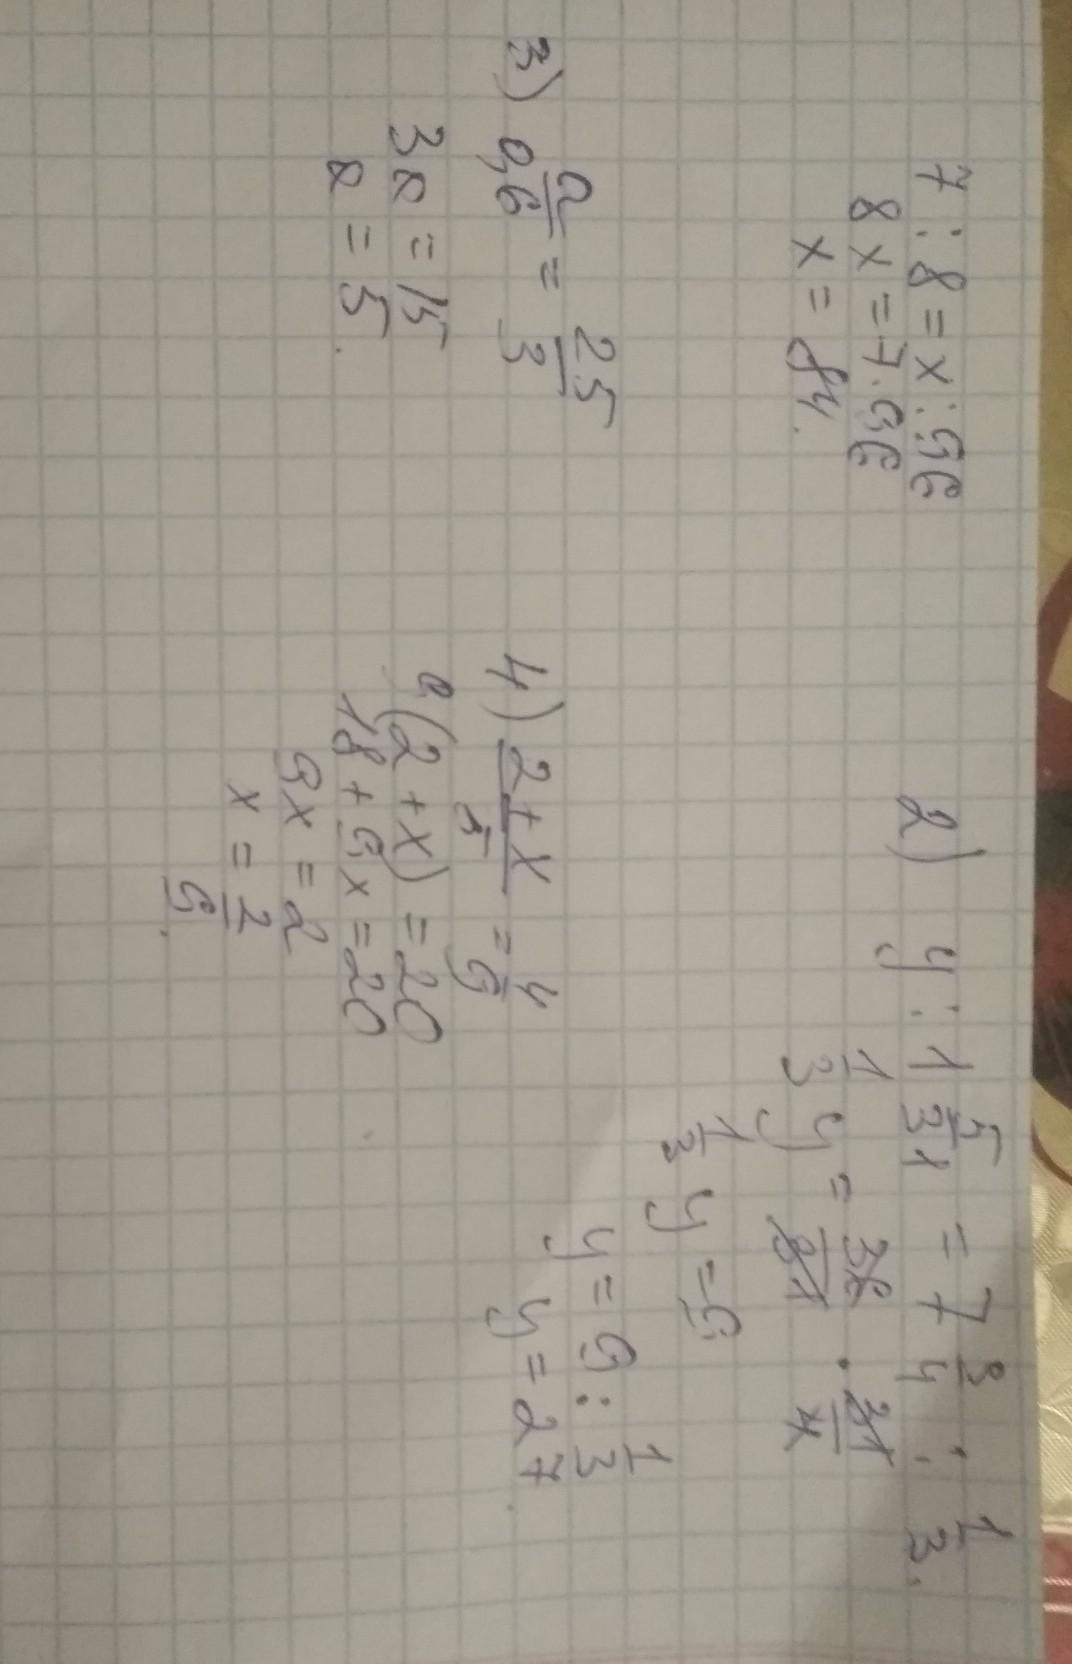 7 : 8 = x : 96
8x = 7 · 96
x = 84.
2) y : 1 5/31 = 7 3/4 : 1/3.
1/3 y = 36/31 · 31/4
1/3 y = 9
y = 9 : 1/3
y = 27.
3) a/0,6 = 25/3
3a = 15
a = 5.
4) (2 + x)/5 = 4/9
9(2 + x) = 20
18 + 9x = 20
9x = 2
x = 2/9.